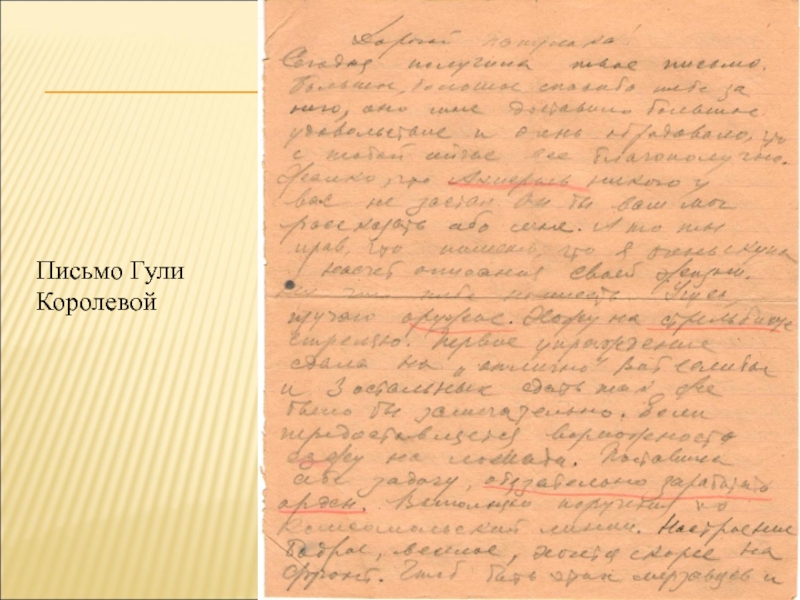 Письмо Гули
Королевой
Дорогой папулька!
Сегодня получила твое письмо.
Большое, большое спасибо тебе за
него, оно мне доставило большое
удовольствие и очень обрадовало, что
с тобой все благополучно.
Жалко, что никого у
вас не застал. Он бы вам мог
рассказать обо мне. А то ты
прав, что что я очень скупа
насчет описания своей жизни.
тебе
оружие. Хожу на стрельбище
стреляю. Первое упражнение
сдала на „отлично" Вот если бы
и 3 остальных сдать так же
было бы замечательно. Если
предоставляется возможность
езжу на лошади. Поставила
себе задачу, обязательно заработать
орден. Выполняю поручения по
Комсомольской линии. Настроение
бодрое, веселое, хочется скорее на
фронт. Чтоб бить этих мерзавцев и